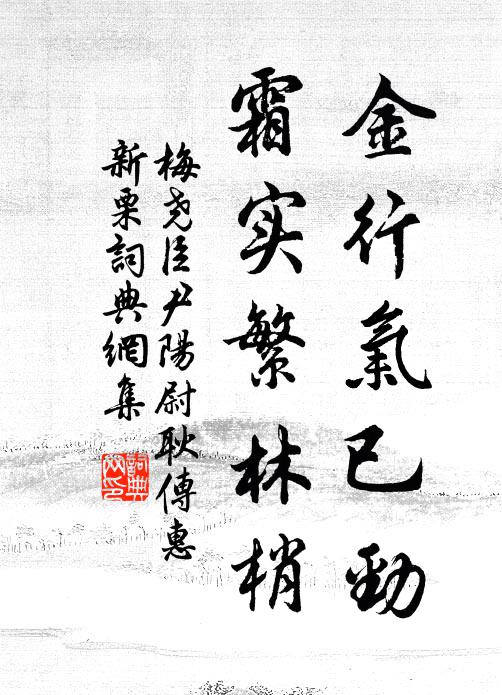 金行氣已勁
霜实繁林梢
梅尧臣尹陽尉耿傳惠
新栗詞典網集
詞典网印